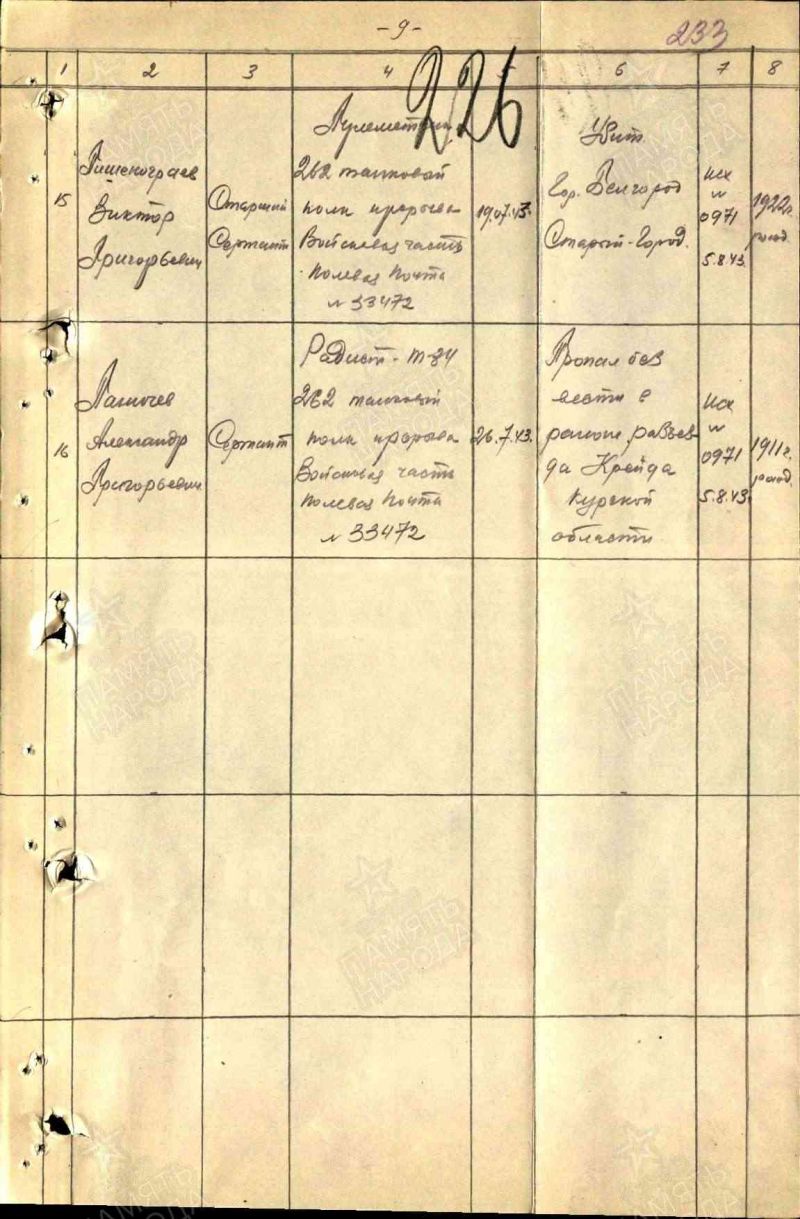 -9-
233
226
1 2 3 4 5 6 7 8
15
Виктор
Григорьевич
Старший
Сержант
Пулеметчик
262 танковый
полк прорыва
Войсковая часть
Полевая Почта
№ 33472
19.07.43.
Убит
Гор. Белгород
Старый-Город.
Исх
№
0971
5.8.43.
1922г.
рожд.
16
Александр
Григорьевич
Сержант
Радист-Т-34
262 танковый
полк прорыва
Войсковая часть
Полевая Почта
№ 33472
26.7.43.
Пропал без
вести в
районе разъез
да Крейда
Курской
области
Исх
№
0971
5.8.43.
1911г.
рожд.
ПАМЯТЬ
НАРОДА